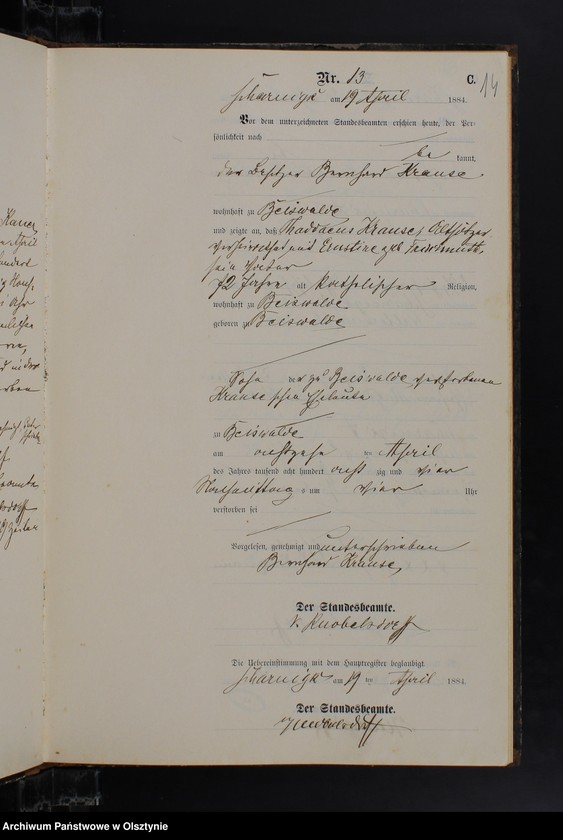 Nr. 13 C. 14
Scharnigk am 19 April 1884.
Vor dem unterzeichneten Standesbeamten erschien heute, der Per-
sönlichkeit nach
be kannt,
der Besitzer Bernhard Krause
wohnhaft zu Beiswalde
und zeigte an, daß Thaddaeus Krause, Altsitzer
verheirathet mit Ernstine geb.
sein Vater
72 Jahre alt katholischer Religion,
wohnhaft zu Beiswalde
geboren zu Beiswalde
Sohn der zu Beiswalde verstorbenen
Krause'schen Eheleute
zu Beiswalde
am achtzehn ten April
des Jahres tausend acht hundert acht zig und vier
Nachmittag s um vier Uhr
verstorben sei
Vorgelesen, genehmigt und unterschrieben
Bernhard Krause,
Der Standesbeamte.
v. Knobelsdorff
Die Uebereinstimmung mit dem Hauptregister beglaubigt
Scharnigk am 19 ten April 1884.
Der Standesbeamte.
v. Knobelsdorff
Archiwum Państwowe w Olsztynie